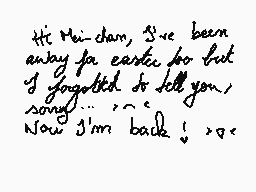 Hi Mei-chan, I've been
away for easter too but
I forgotted to tell you,
sorry... >~<
Now I'm back! >o<